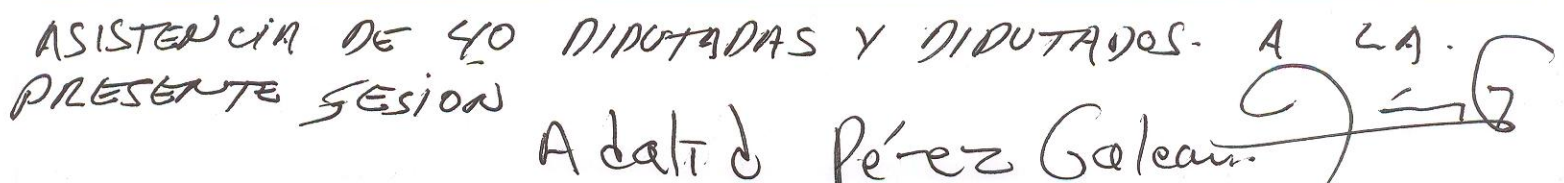 ASISTENCIA DE 40 DIPUTADAS Y DIPUTADOS. A LA.
PRESENTE SESION
Adalid Pérez Galeana